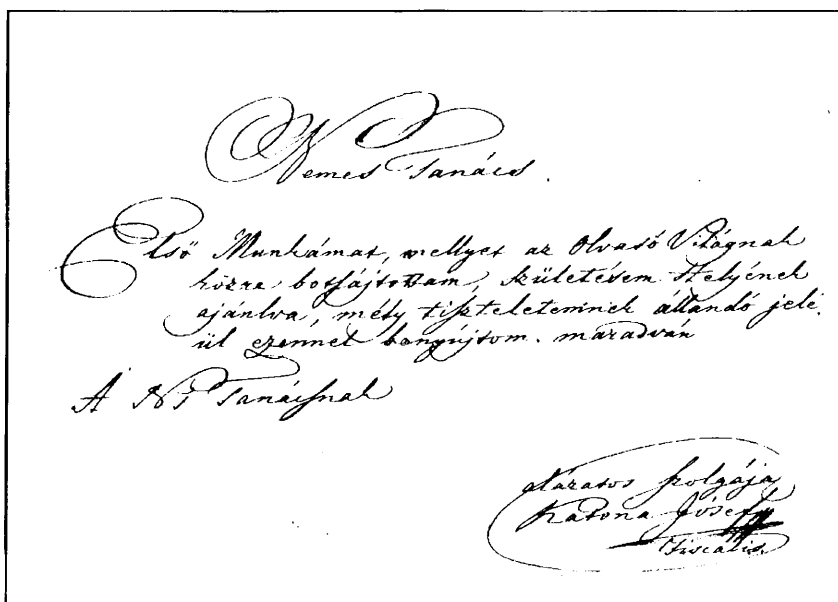 Nemes Tanács.
Első Munkámat, mellyet az Olvasó Világnak
közre botsájtottam, születésem Helyének
ajánlva, mély tiszteletemnek állandó jelé-
ül ezennel benyújtom. maradván
A Ns Tanácsnak
alázatos szolgája
Katona Jósef
Fiscalis.